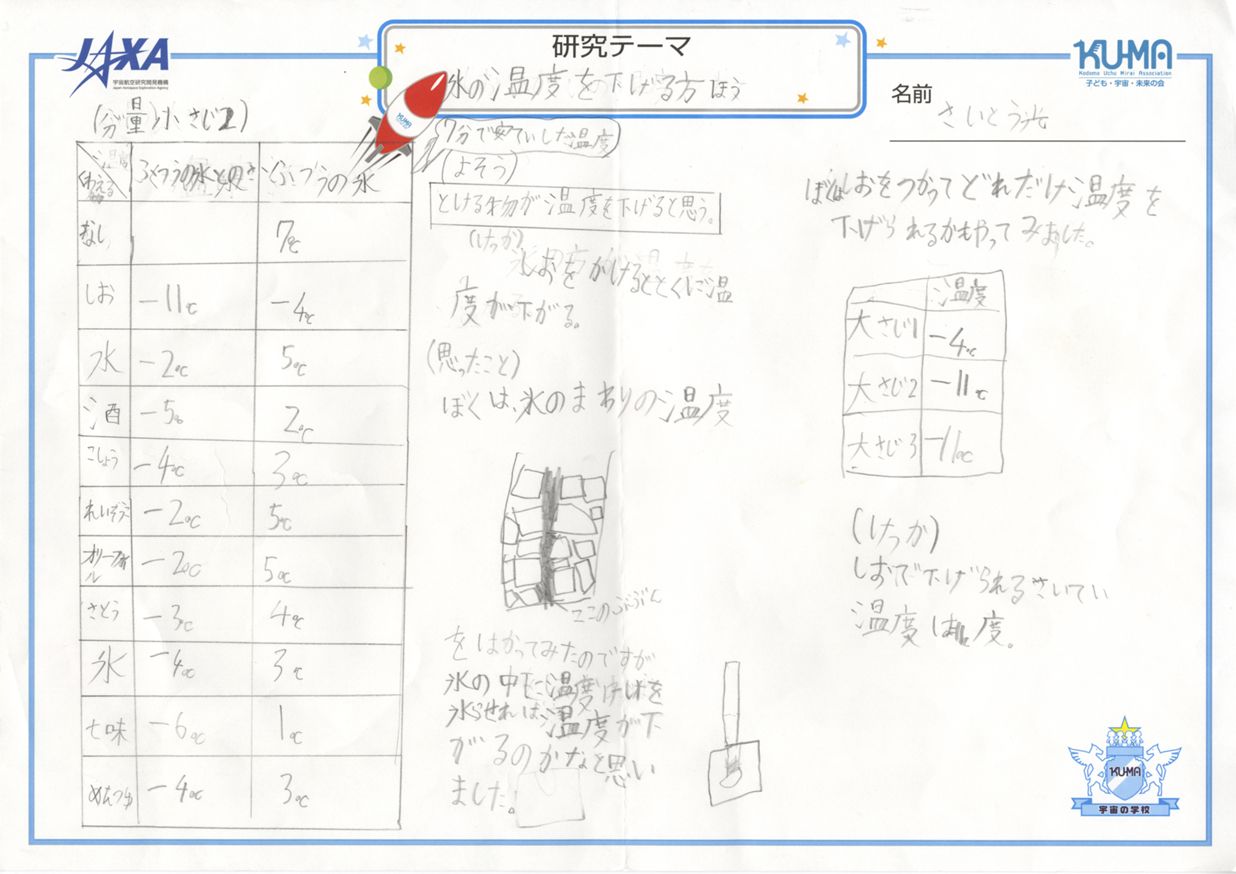 JAXA
宇宙航空研究開発機構
Japan Aerospace Exploration Agency
研究テーマ
氷の温度を下げる方ほう
KUMA
Kodomo Uchu Mirai Association
子ども・宇宙・未来の会
名前 さいとう光
(分量)小さじ2)
温度
くわえる物
ふつうの氷との差
ふつうの氷
なし 7℃
しお -11℃ -4℃
水 -2℃ 5℃
酒 -5℃ 2℃
こしょう -4℃ 3℃
れいぞうこ -2℃ 5℃
オリーブオイル -2℃ 5℃
さとう -3℃ 4℃
氷 -4℃ 3℃
七味 -6℃ 1℃
めんつゆ -4℃ 3℃
KUMA
7分で安ていした温度
(よそう)
とける物が温度を下げると思う。
(けっか)
しおをかけるととくに温
度が下がる。
(思ったこと)
ぼくは、氷のまわりの温度
ここのぶぶん
をはかってみたのですが
氷の中に温度計を
氷らせれば温度が下
がるのかなと思い
ました。
ぼくはしおをつかってどれだけ温度を
下げられるかもやってみました。
温度
大さじ1 -4℃
大さじ2 -11℃
大さじ3 -11℃
(けっか)
しおで下げられるさいてい
温度は 度。
KUMA
宇宙の学校